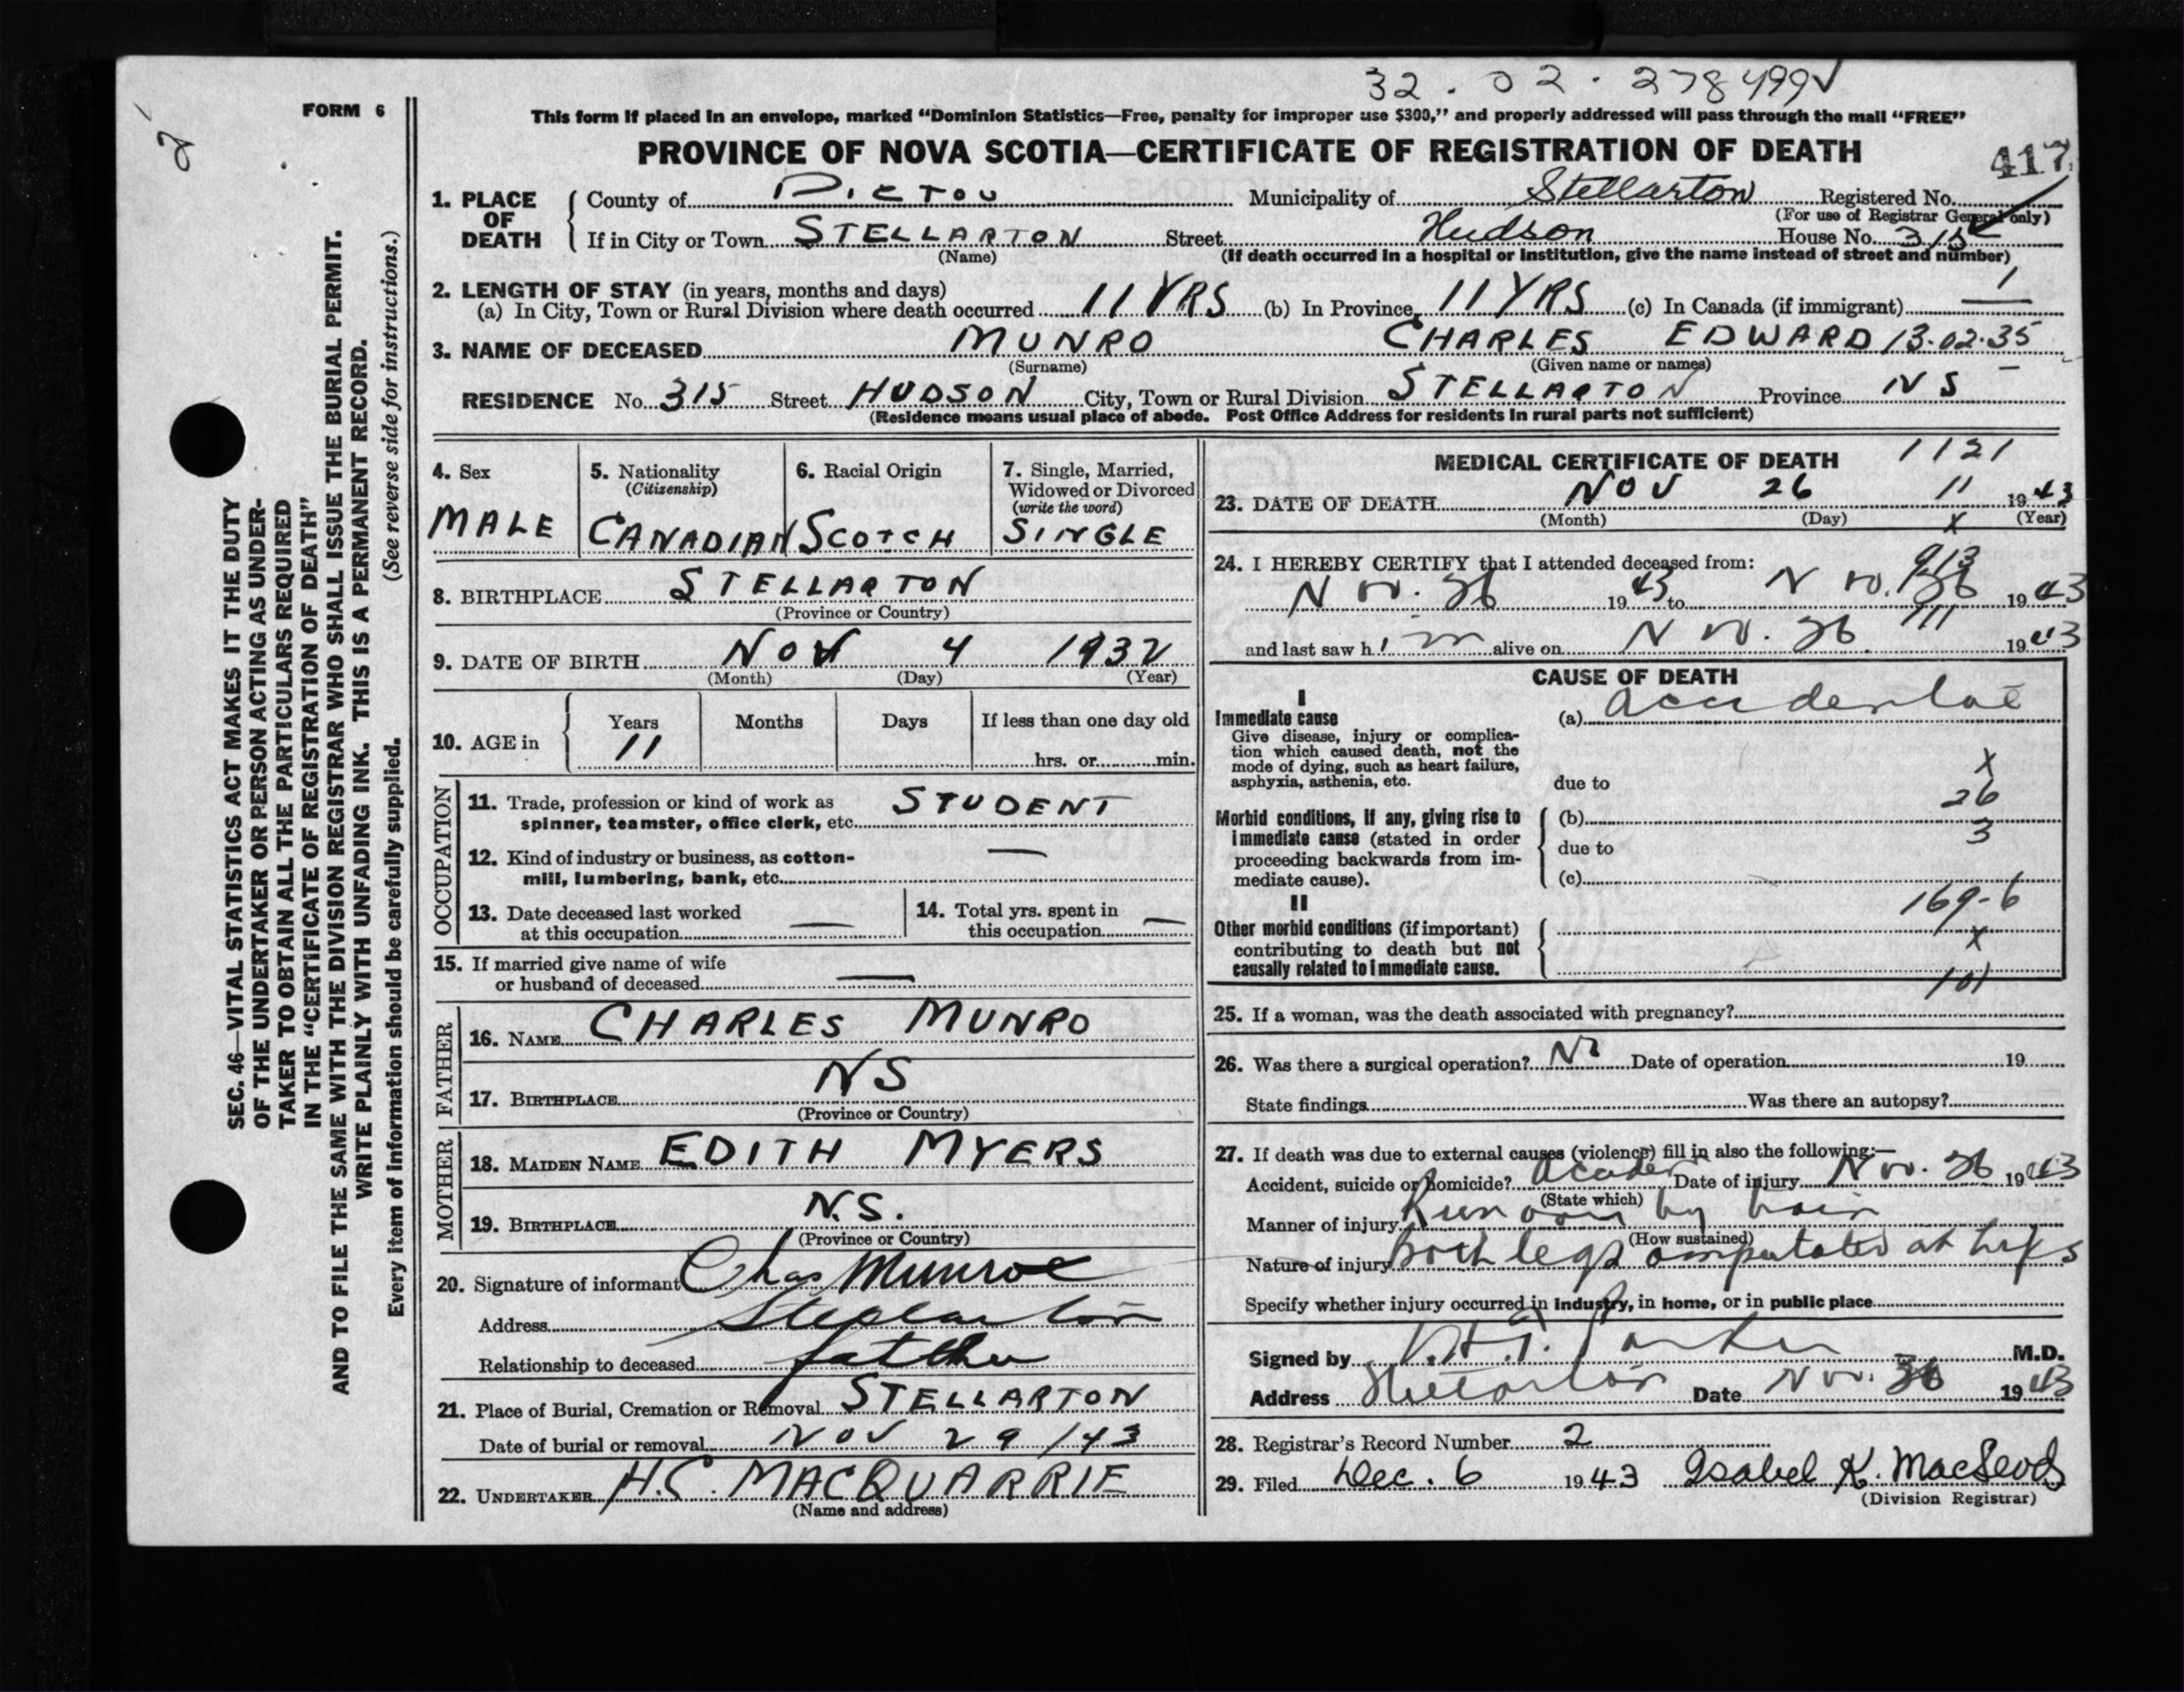 32 . 02 . 278499✓
FORM 6
This form if placed in an envelope, marked “Dominion Statistics—Free, penalty for improper use $300,” and properly addressed will pass through the mail “FREE”
PROVINCE OF NOVA SCOTIA—CERTIFICATE OF REGISTRATION OF DEATH
417
1. PLACE OF DEATH
County of PICTOU Municipality of Stellarton Registered No.
(For use of Registrar General only)
If in City or Town STELLARTON Street Hudson House No. 315
(Name) (If death occurred in a hospital or institution, give the name instead of street and number)
2. LENGTH OF STAY (in years, months and days)
(a) In City, Town or Rural Division where death occurred 11 YRS (b) In Province 11 YRS (c) In Canada (if immigrant) —
1
3. NAME OF DECEASED MUNRO CHARLES EDWARD 13.02.35
(Surname) (Given name or names)
RESIDENCE No. 315 Street HUDSON City, Town or Rural Division STELLARTON Province N S
(Residence means usual place of abode. Post Office Address for residents in rural parts not sufficient)
4. Sex
MALE
5. Nationality
(Citizenship)
CANADIAN
6. Racial Origin
SCOTCH
7. Single, Married,
Widowed or Divorced
(write the word)
SINGLE
8. BIRTHPLACE STELLARTON
(Province or Country)
9. DATE OF BIRTH NOV 4 1932
(Month) (Day) (Year)
10. AGE in
Years Months Days If less than one day old
11
hrs. or min.
OCCUPATION
11. Trade, profession or kind of work as
spinner, teamster, office clerk, etc. STUDENT
12. Kind of industry or business, as cotton-
mill, lumbering, bank, etc. —
13. Date deceased last worked
at this occupation —
14. Total yrs. spent in
this occupation —
15. If married give name of wife
or husband of deceased —
FATHER
16. NAME CHARLES MUNRO
17. BIRTHPLACE NS
(Province or Country)
MOTHER
18. MAIDEN NAME EDITH MYERS
19. BIRTHPLACE N.S.
(Province or Country)
20. Signature of informant Chas Munroe
Address Stellarton
Relationship to deceased father
21. Place of Burial, Cremation or Removal STELLARTON
Date of burial or removal NOV 29/43
22. UNDERTAKER H.C. MACQUARRIE
(Name and address)
MEDICAL CERTIFICATE OF DEATH
1121
23. DATE OF DEATH NOV 26 11 1943
(Month) (Day) (Year)
x
24. I HEREBY CERTIFY that I attended deceased from:
913
Nov. 26 1943 to Nov. 26 1943
111
and last saw h im alive on Nov. 26 1943
CAUSE OF DEATH
I
Immediate cause
Give disease, injury or complica-
tion which caused death, not the
mode of dying, such as heart failure,
asphyxia, asthenia, etc.
(a) accidental
due to
x
26
3
Morbid conditions, if any, giving rise to
immediate cause (stated in order
proceeding backwards from im-
mediate cause).
(b)
due to
(c)
II
169-6
x
101
Other morbid conditions (if important)
contributing to death but not
causally related to immediate cause.
25. If a woman, was the death associated with pregnancy?
26. Was there a surgical operation? No Date of operation 19
State findings Was there an autopsy?
27. If death was due to external causes (violence) fill in also the following:—
Accident, suicide or homicide? Date of injury Nov. 26 1943
(State which)
Manner of injury Run over by train
(How sustained)
Nature of injury both legs amputated at hips
Specify whether injury occurred in industry, in home, or in public place
Signed by M.D.
Address Stellarton Date Nov. 1943
28. Registrar's Record Number 2
29. Filed Dec. 6 1943 Isabel K. MacLeod
(Division Registrar)
SEC. 46—VITAL STATISTICS ACT MAKES IT THE DUTY
OF THE UNDERTAKER OR PERSON ACTING AS UNDER-
TAKER TO OBTAIN ALL THE PARTICULARS REQUIRED
IN THE “CERTIFICATE OF REGISTRATION OF DEATH”
AND TO FILE THE SAME WITH THE DIVISION REGISTRAR WHO SHALL ISSUE THE BURIAL PERMIT.
WRITE PLAINLY WITH UNFADING INK. THIS IS A PERMANENT RECORD.
Every item of information should be carefully supplied. (See reverse side for instructions.)
2